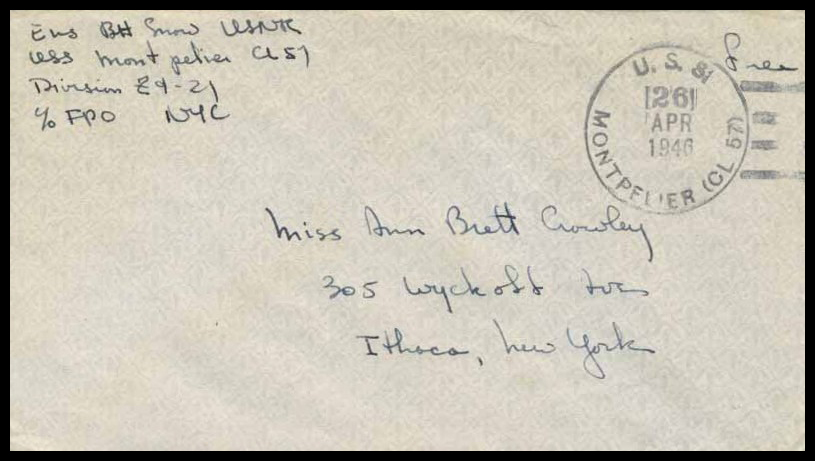 Ens BH Snow USNR
USS Montpelier CL57
Division E4-21
c/o FPO NYC
Free
U. S. S.
26
APR
1946
MONTPELIER (CL 57)
Miss Ann Brett Crowley
305 Wyckoff Ave
Ithaca, New York